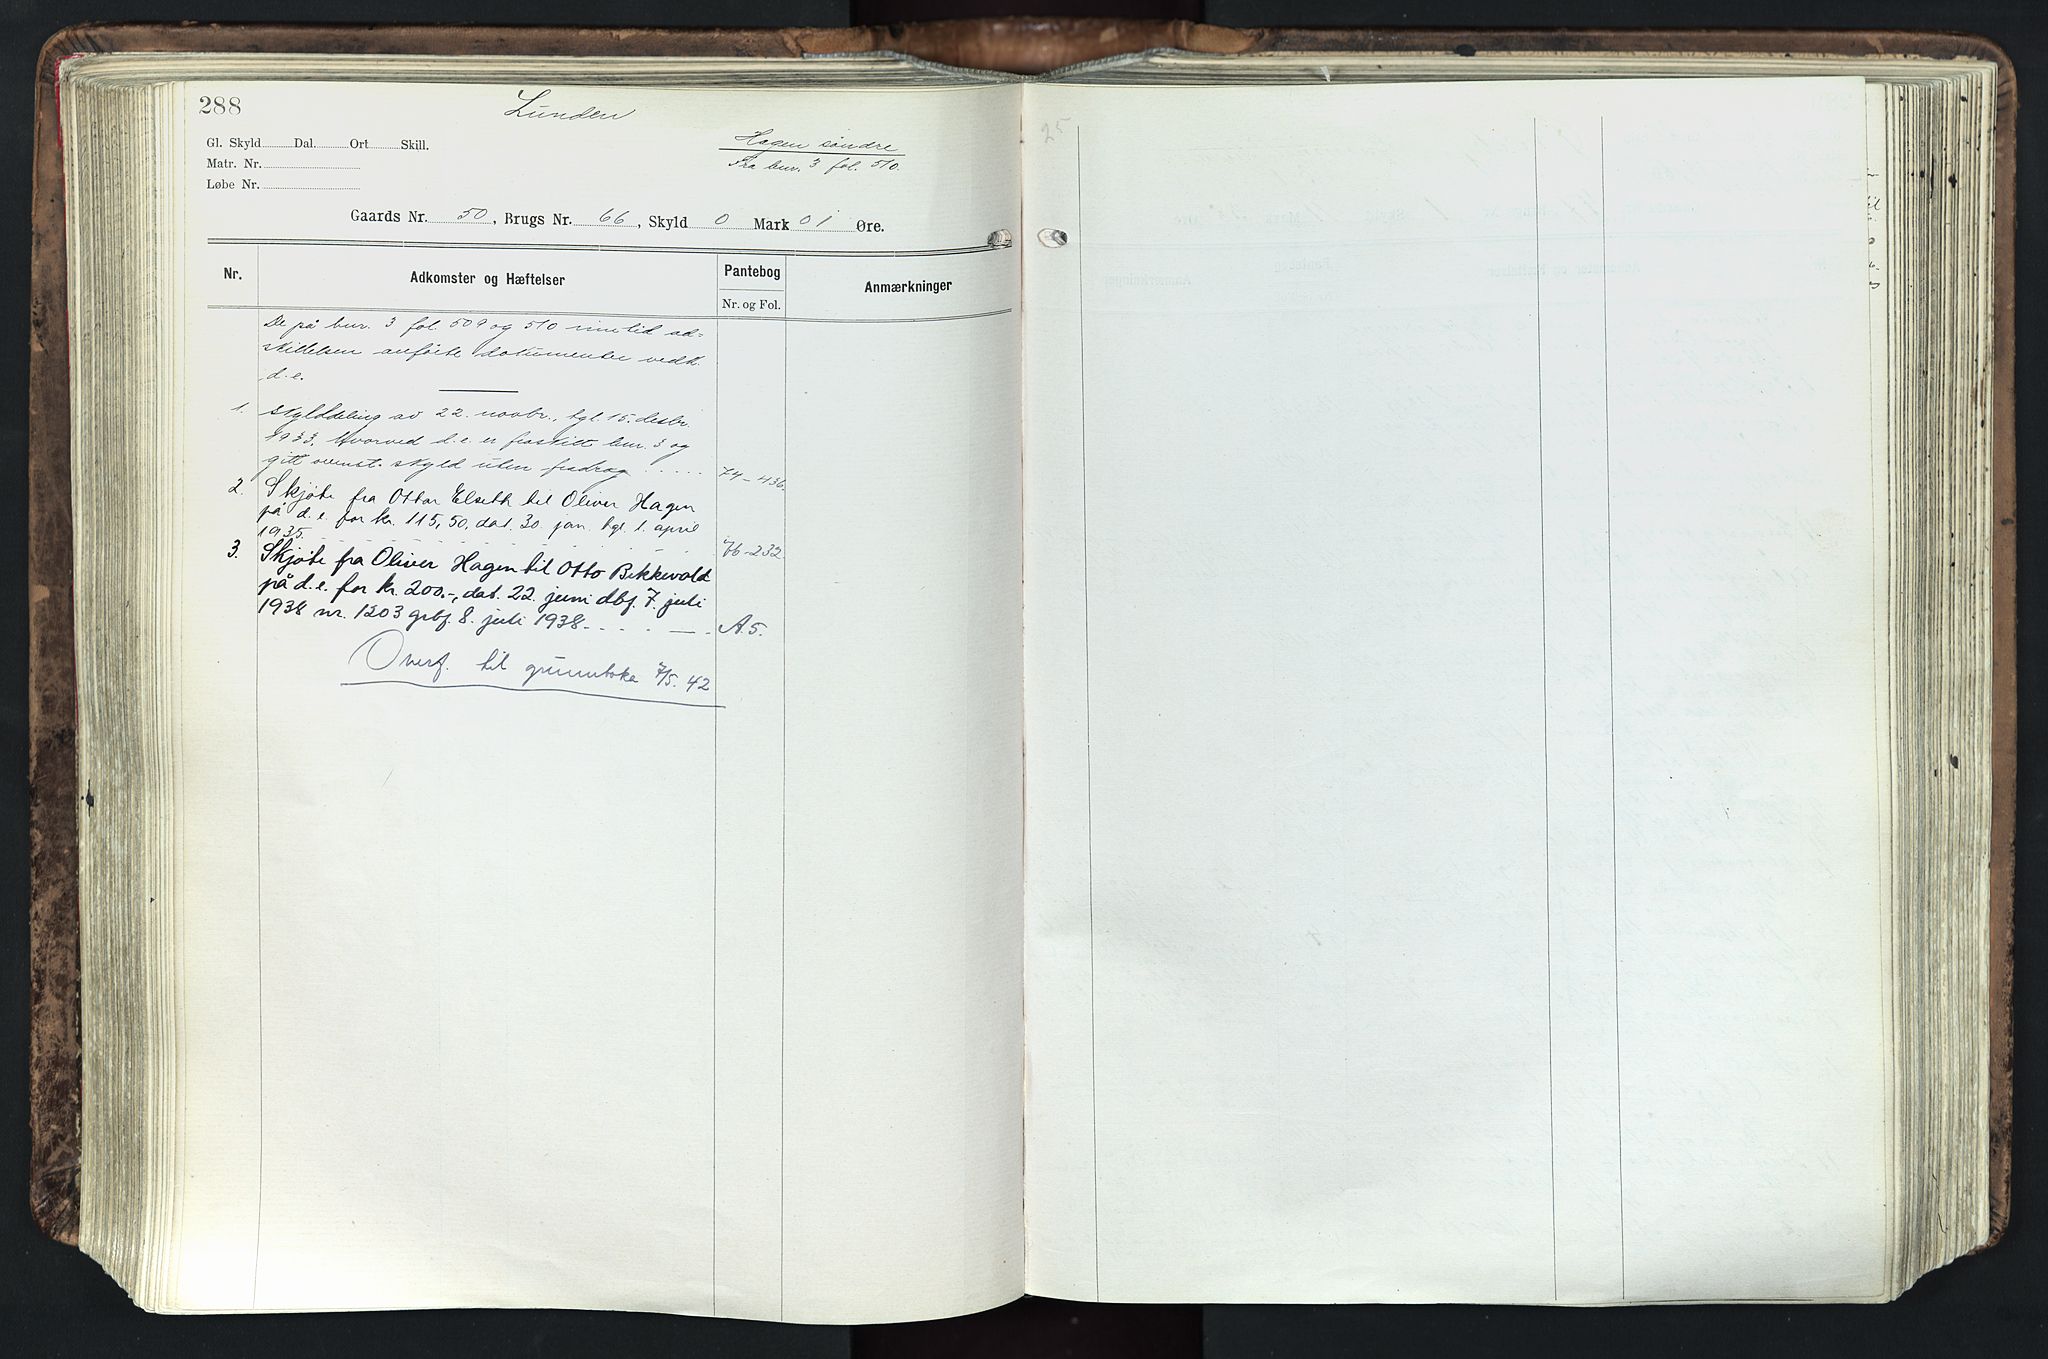 288
Lunden
Gl. Skyld Dal. Ort Skill.
Hagen søndre
Matr. Nr.
Fra bnr. 3 fol. 510.
Løbe Nr.
Gaards Nr. 50, Brugs Nr. 66, Skyld 0 Mark 01 Øre.
Nr. Adkomster og Hæftelser Pantebog Anmærkninger
Nr. og Fol.
De på bnr. 3 fol. 509 og 510 inntil ad-
skillelsen anførte dokumenter vedk.
d.e.
1. Skylddeling av 22. novbr., tgl. 15. desbr.
1933, hvorved d.e. er fraskilt bnr. 3 og
gitt ovenst. skyld uten fradrag ..... 74-436.
2. Skjøte fra Ottar Elseth til Oliver Hagen
på d.e. for kr. 115,50, dat. 30. jan. tgl. 1. april
1935. 76-232
3. Skjøte fra Oliver Hagen til Otto Bekkevold
på d.e. for kr. 200.-, dat. 22. juni dbf. 7. juli
1938 nr. 1203 grbf. 8. juli 1938 A.5.
Overf. til grunnboka 7/5. 42
25